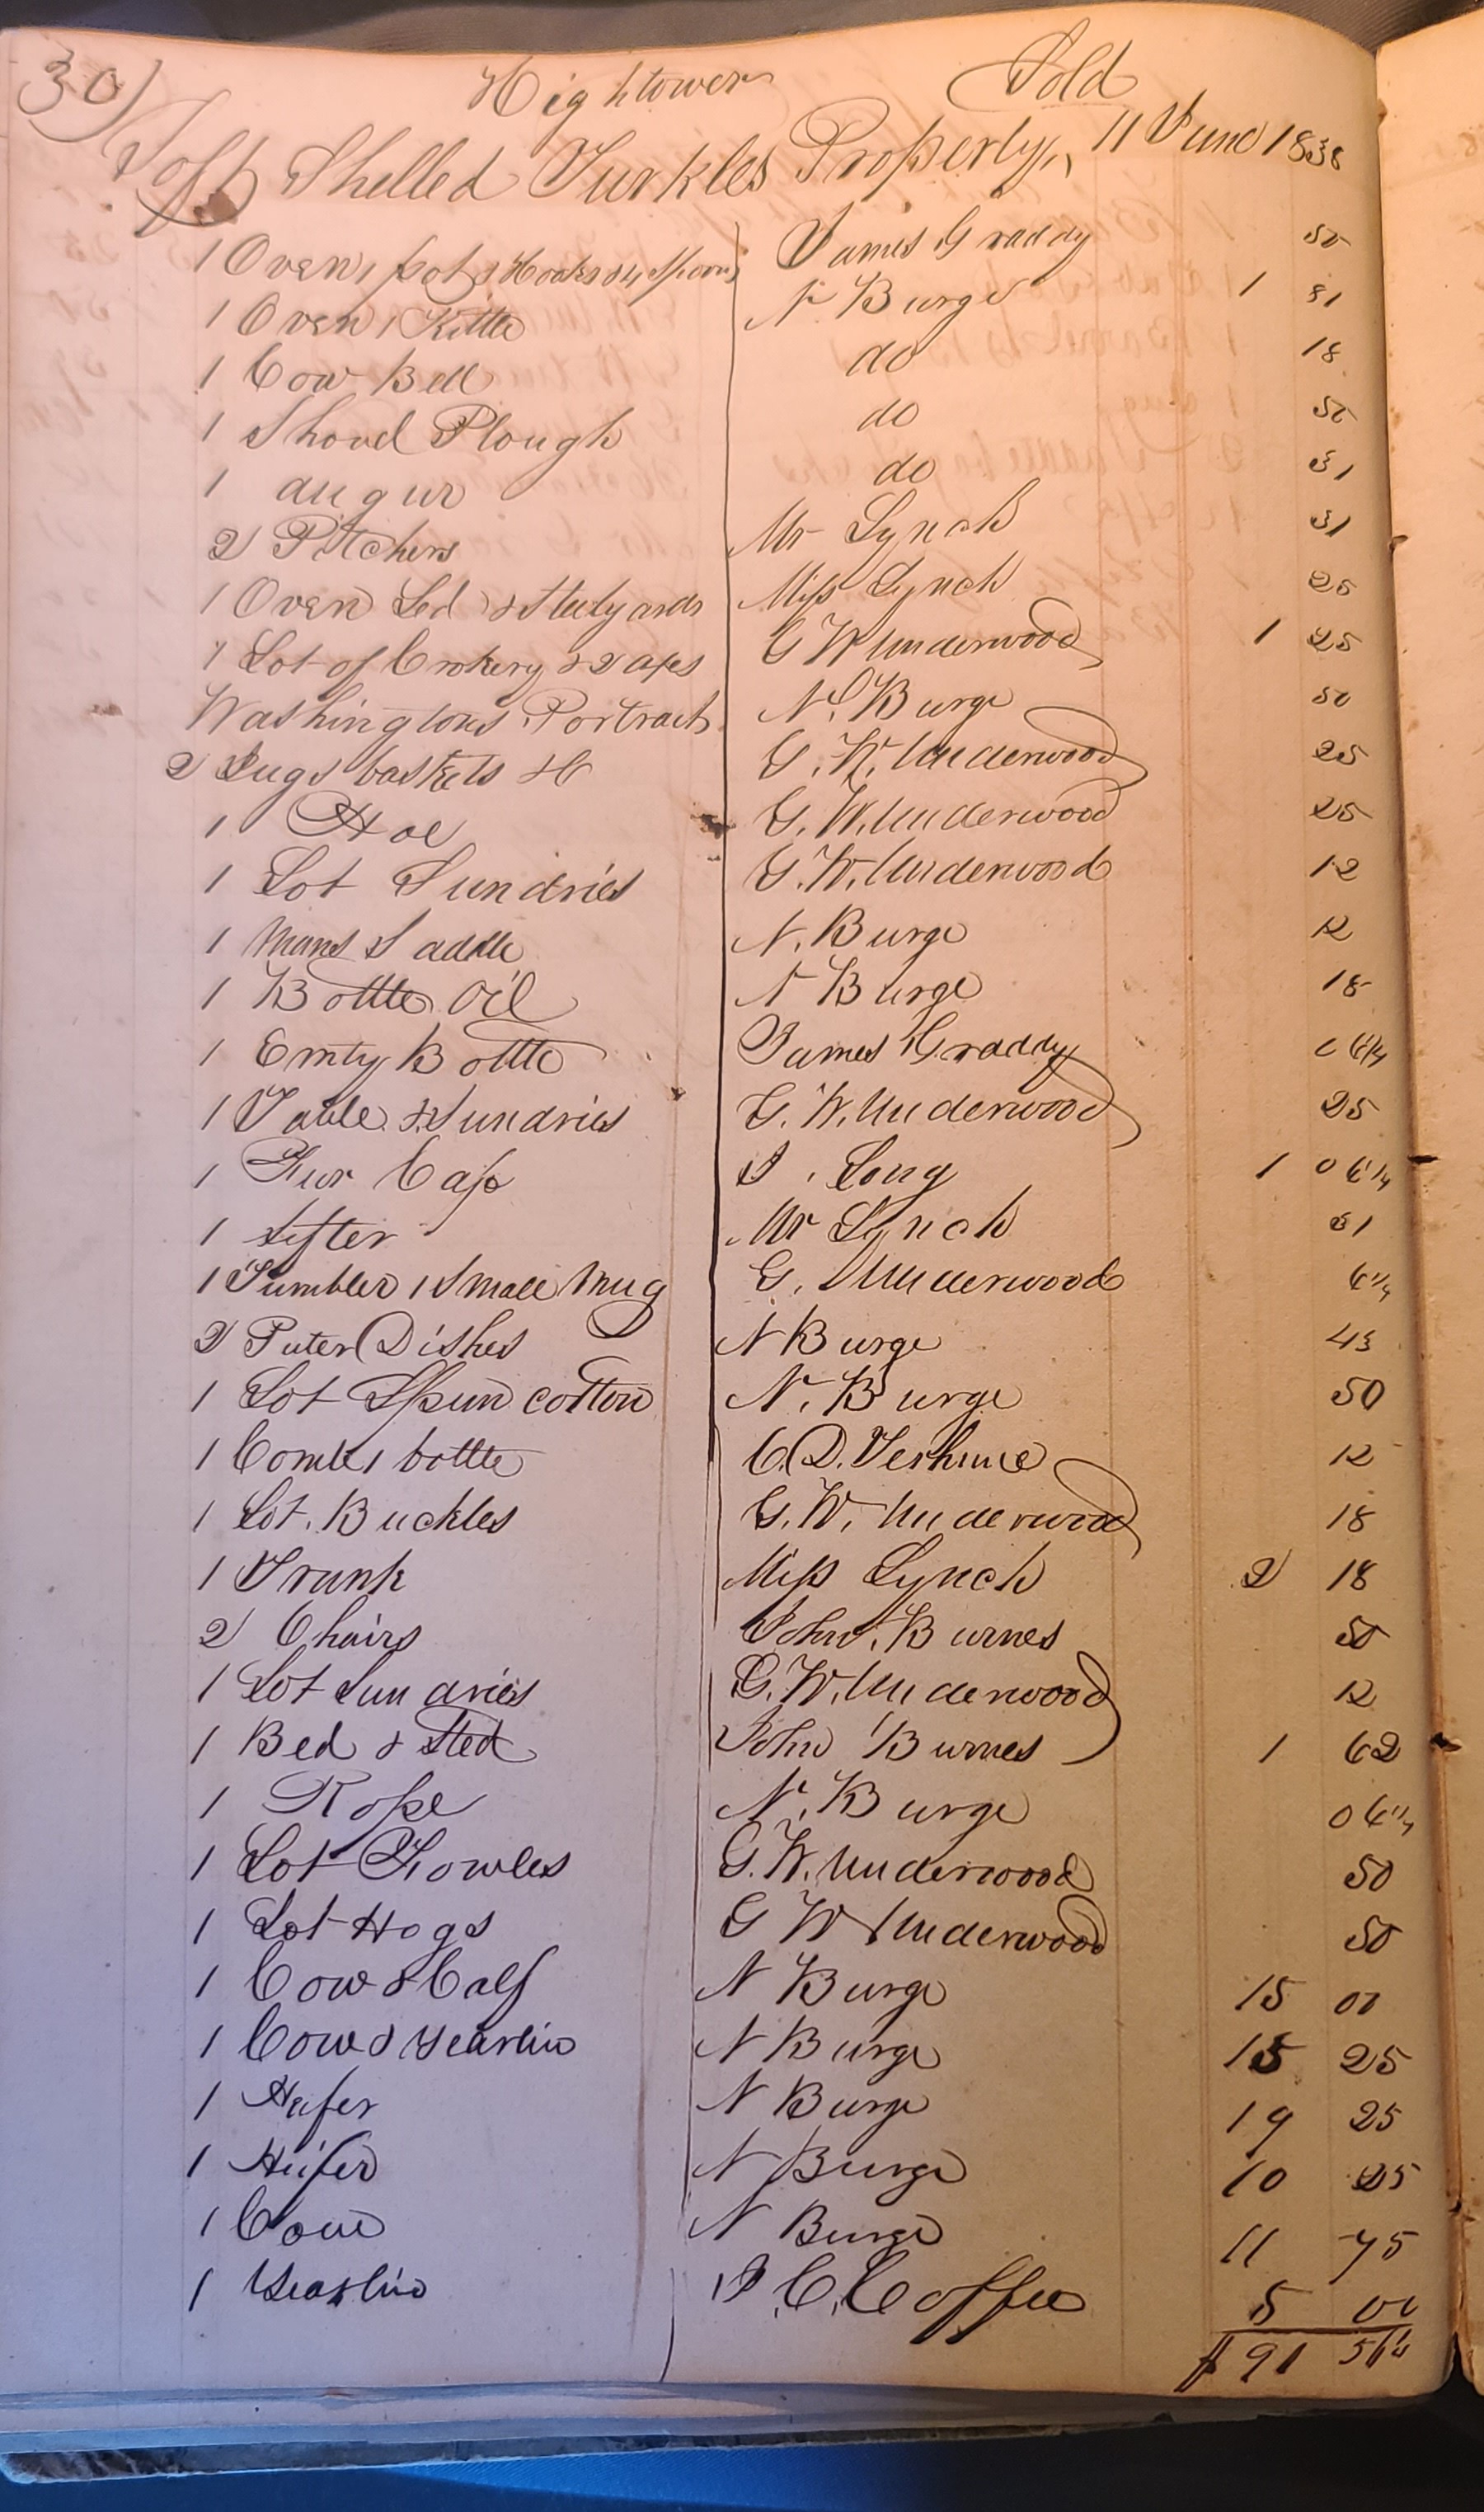 30) Hightower Sold
Soft Shelled Turkles Property, 11 June 1838
1 Oven 1 pot & Hooks & 4 Spoons James Graddy 50
1 Oven 1 Kittle N Burge 1 81
1 Cow Bell do 18
1 Shovel Plough do 50
1 augur do 31
2 Pitchers Mr Lynch 31
1 Oven Led & Steelyards Miss Lynch 25
1 Lot of Crokery & 2 axes G W Underwood 1 25
Washingtons Portrait N. Burge 50
2 Jugs baskets &C G. W. Underwood 25
1 Hoe G. W. Underwood 25
1 Lot Sundries G. W. Underwood 12
1 Mans Saddle N. Burge 12
1 Bottle Oil N Burge 18
1 Emty Bottle James Graddy 6 1/4
1 Table & Sundries G. W. Underwood 25
1 Fur Cap J. Long 1 06 1/4
1 sifter Mr Lynch 31
1 Tumbler 1 Small Mug G. Underwood 6 1/4
2 Puter Dishes N Burge 43
1 Lot Spun cotton N. Burge 50
1 Comb 1 bottle C. D. Terhune 12
1 Lot. Buckles G. W. Underwood 18
1 Trunk Miss Lynch 2 18
2 Chairs John Burnes 50
1 Lot Sundries G. W. Underwood 12
1 Bed & Sted John Burnes 1 62
1 Rope N. Burge 06 1/4
1 Lot Fowles G. W. Underwood 50
1 Lot Hogs G W Underwood 50
1 Cow & Calf N Burge 15 00
1 Cow & Yearlin N Burge 15 25
1 Heifer N Burge 19 25
1 Heifer N Burge 10 25
1 Cow N Burge 11 75
1 Yearlin J. C. Coffee 5 00
$91